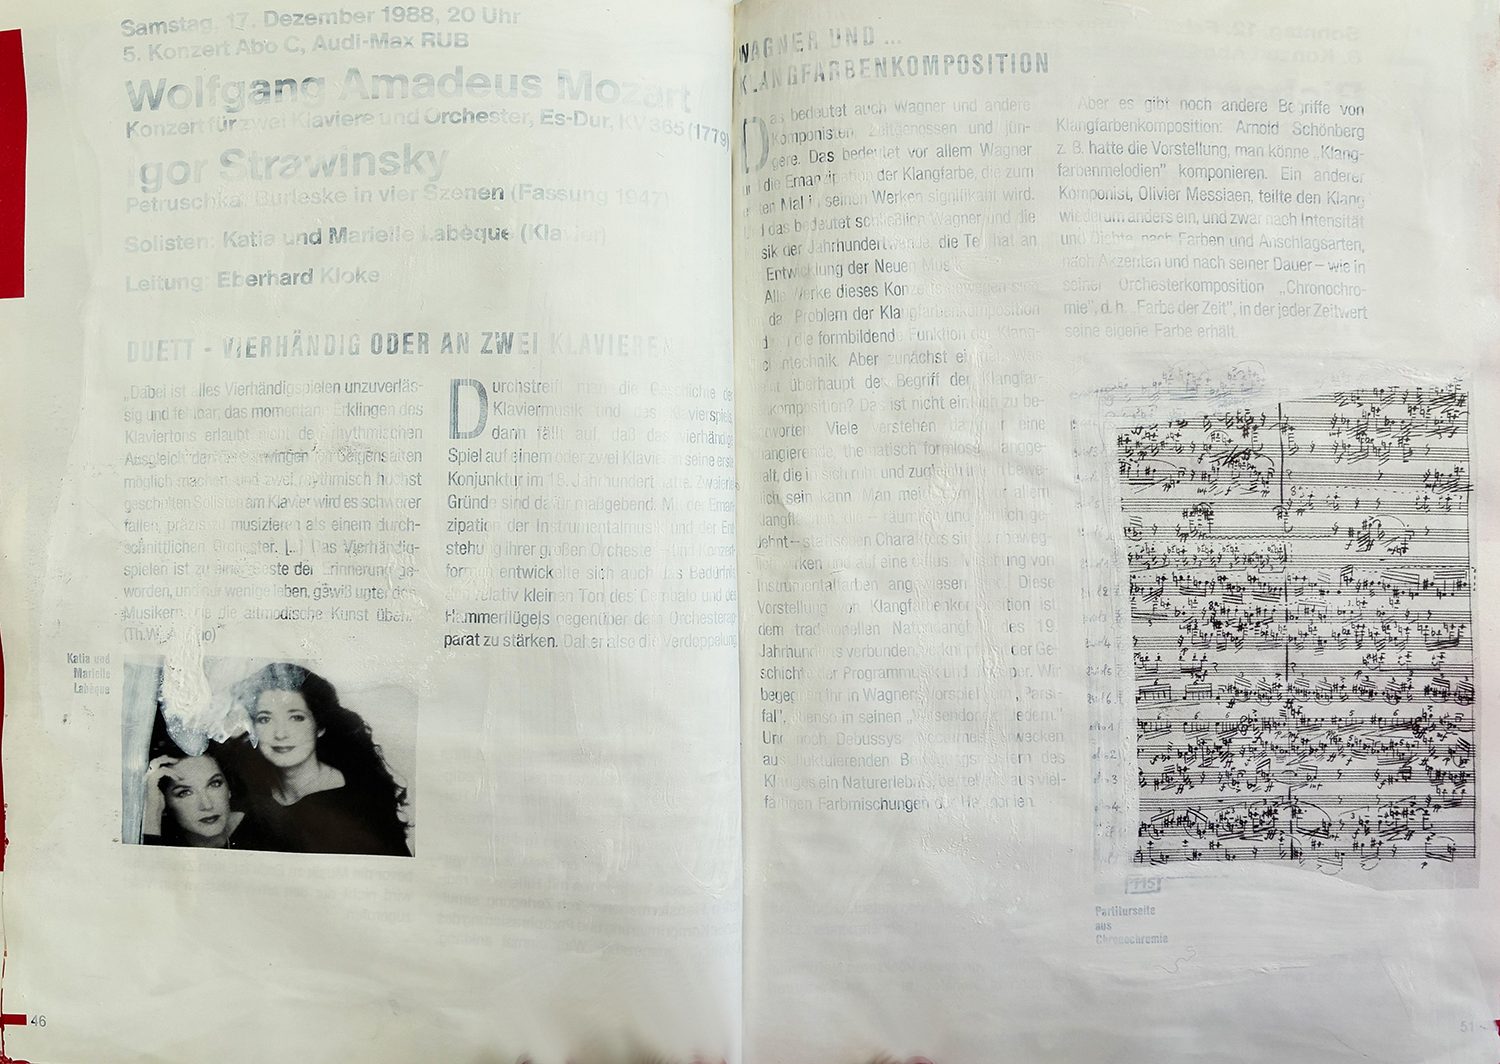 Samstag, 17. Dezember 1988, 20 Uhr
5. Konzert Abo C, Audi-Max RUB
Wolfgang Amadeus Mozart
Konzert für zwei Klaviere und Orchester, Es-Dur, KV 365 (1779)
Igor Strawinsky
Petruschka. Burleske in vier Szenen (Fassung 1947)
Solisten: Katia und Marielle Labèque (Klavier)
Leitung: Eberhard Kloke
DUETT - VIERHÄNDIG ODER AN ZWEI KLAVIEREN
„Dabei ist alles Vierhändigspielen unzuverläs-
sig und fehlbar, das momentane Erklingen des
Klaviertons erlaubt nicht den rhythmischen
Ausgleich der von Geigensaiten
möglich machen und zwei rhythmisch höchst
geschulten Solisten am Klavier wird es schwerer
fallen, präzis zu musizieren als einem durch-
schnittlichen Orchester. [...] Das Vierhändig-
spielen ist zu einer Geste der Erinnerung ge-
worden, und nur wenige leben, gewiß unter den
Musikern, die die altmodische Kunst üben.“
(Th.W. Adorno)
Katia und
Marielle
Labèque
Durchstreift man die Geschichte der
Klaviermusik und das Klavierspiels,
dann fällt auf, daß das vierhändige
Spiel auf einem oder zwei Klavieren seine erste
Konjunktur im 18. Jahrhundert hatte. Zweierlei
Gründe sind dafür maßgebend. Mit der Eman-
zipation der Instrumentalmusik und der Ent-
stehung ihrer großen Orchester- und Konzert-
formen entwickelte sich auch das Bedürfnis,
relativ kleinen Ton des Cembalo und des
Hammerflügels gegenüber dem Orchesterap-
parat zu stärken. Daher also die Verdoppelung
46
WAGNER UND ...
KLANGFARBENKOMPOSITION
Das bedeutet auch Wagner und andere
Komponisten, Zeitgenossen und jün-
gere. Das bedeutet vor allem Wagner
und die Emanzipation der Klangfarbe, die zum
ersten Mal in seinen Werken signifikant wird.
Und das bedeutet schließlich Wagner und die
Musik der Jahrhundertwende, die Teil hat an
Entwicklung der Neuen Musik.
Alle Werke dieses Konzerts bewegen sich
um das Problem der Klangfarbenkomposition
die formbildende Funktion der Klang-
technik. Aber zunächst einmal: Was
überhaupt der Begriff der Klangfar-
benkomposition? Das ist nicht einfach zu be-
antworten. Viele verstehen darunter eine
changierende, thematisch formlose Klangge-
stalt, die in sich ruht und zugleich in Bewe-
lich sein kann. Man meint damit vor allem
Klangflächen, die – räumlich und zeitlich ge-
dehnt – statischen Charakters sind, unbeweg-
lich wirken und auf eine diffuse Mischung von
Instrumentalfarben angewiesen sind. Diese
Vorstellung von Klangfarbenkomposition ist
dem traditionellen Naturklangbild des 19.
Jahrhunderts verbunden, verknüpft an der Ge-
schichte der Programmusik und der Oper. Wir
begegnen ihr in Wagners Vorspiel zum „Parsi-
fal“, ebenso in seinen „Wesendonck-Liedern.“
Und noch Debussys „Nocturnes“ erwecken
aus fluktuierenden Bewegungsformen des
Klanges ein Naturerlebnis, bestehend aus viel-
fältigen Farbmischungen der Harmonien.
Aber es gibt noch andere Begriffe von
Klangfarbenkomposition: Arnold Schönberg
z. B. hatte die Vorstellung, man könne „Klang-
farbenmelodien” komponieren. Ein anderer
Komponist, Olivier Messiaen, teilte den Klang
wiederum anders ein, und zwar nach Intensität
und Dichte, nach Farben und Anschlagsarten,
nach Akzenten und nach seiner Dauer – wie in
seiner Orchesterkomposition „Chronochro-
mie”, d. h. „Farbe der Zeit”, in der jeder Zeitwert
seine eigene Farbe erhält.
115
Partiturseite
aus
Chronochromie
51